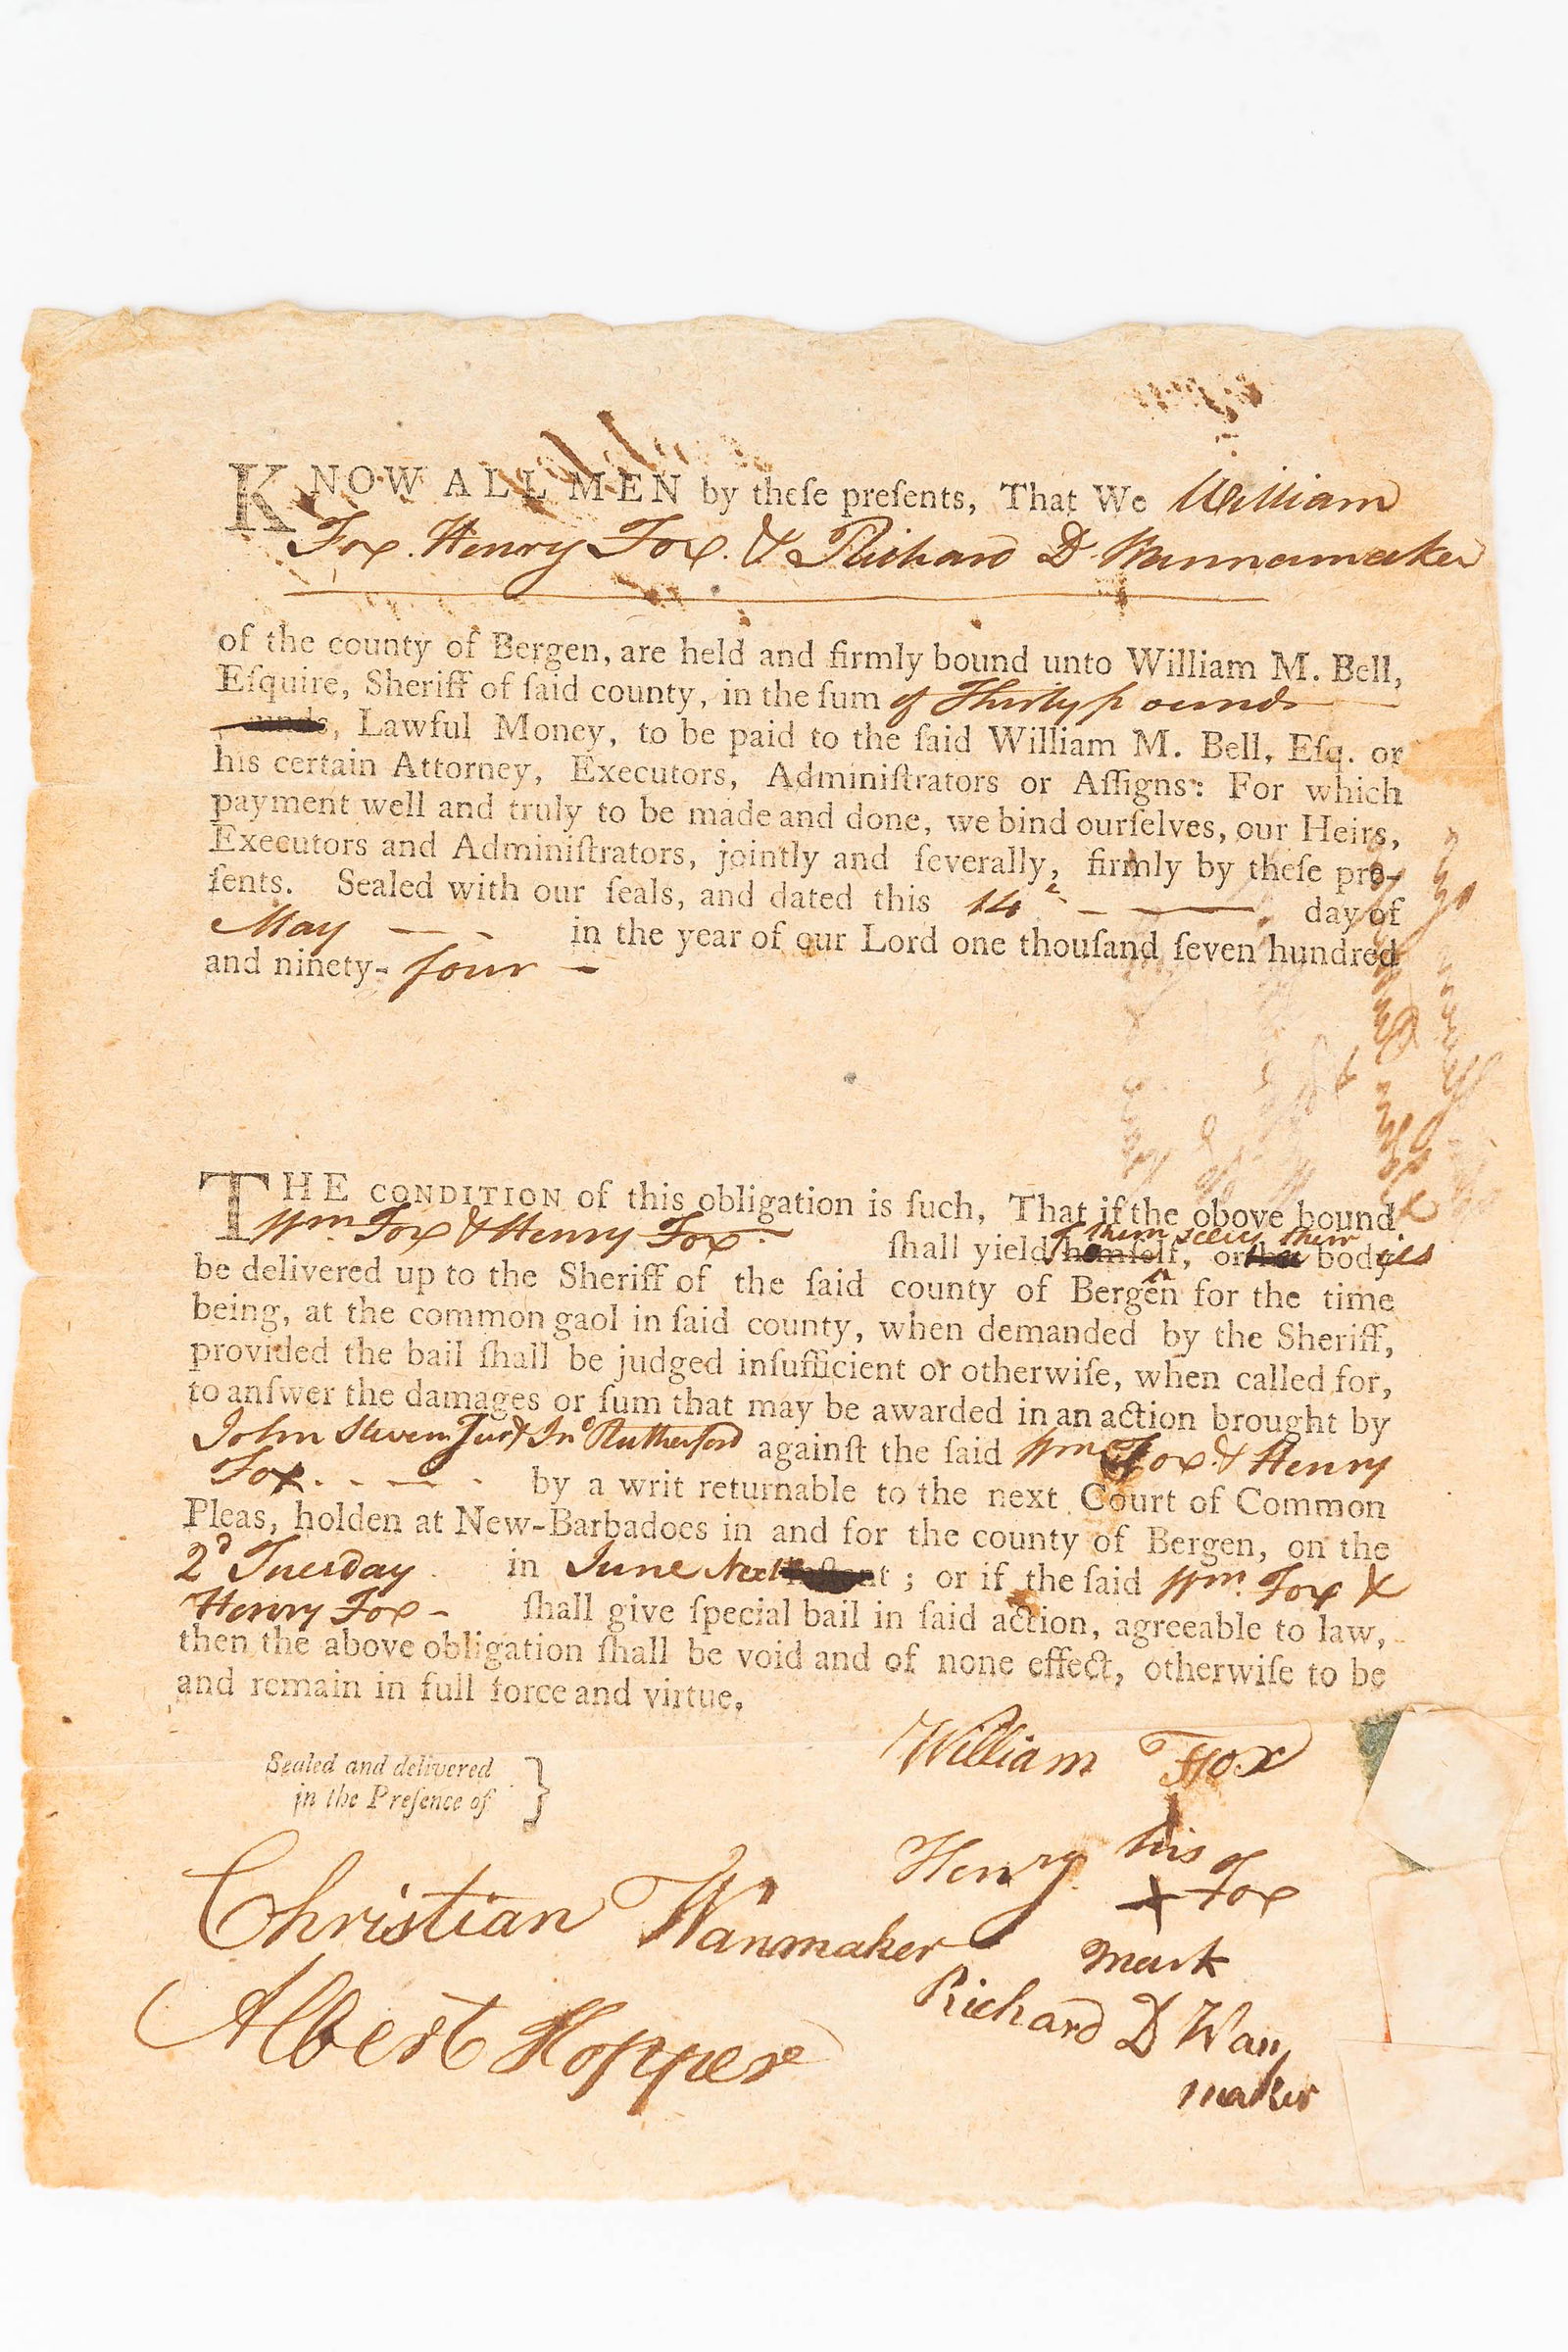 KNOW ALL MEN by theſe preſents, That We William
Fox. Henry Fox. & Richard D Wannamaker
of the county of Bergen, are held and firmly bound unto William M. Bell,
Eſquire, Sheriff of ſaid county, in the ſum of Thirty pounds
, Lawful Money, to be paid to the ſaid William M. Bell, Eſq. or
his certain Attorney, Executors, Adminiſtrators or Aſſigns: For which
payment well and truly to be made and done, we bind ourſelves, our Heirs,
Executors and Adminiſtrators, jointly and ſeverally, firmly by theſe pre-
ſents. Sealed with our ſeals, and dated this 14 day of
May in the year of our Lord one thouſand ſeven hundred
and ninety- four
THE CONDITION of this obligation is ſuch, That if the obove bound
Wm Fox & Henry Fox
them selves their
ſhall yield himſelf, or body ies
be delivered up to the Sheriff of the ſaid county of Bergen for the time
being, at the common gaol in ſaid county, when demanded by the Sheriff,
provided the bail ſhall be judged inſufficient or otherwiſe, when called for,
to anſwer the damages or ſum that may be awarded in an action brought by
John Stevens Jur & Jno Rutherford againſt the ſaid Wm Fox & Henry
Fox. by a writ returnable to the next Court of Common
Pleas, holden at New-Barbadoes in and for the county of Bergen, on the
2d Tuesday in June Next ; or if the ſaid Wm. Fox &
Henry Fox ſhall give ſpecial bail in ſaid action, agreeable to law,
then the above obligation ſhall be void and of none effect, otherwiſe to be
and remain in full force and virtue.
William Fox
Sealed and delivered
in the Preſence of }
his
Henry + Fox
mark
Christian Wanmaker
Richard D Wan
maker
Albert Hopper